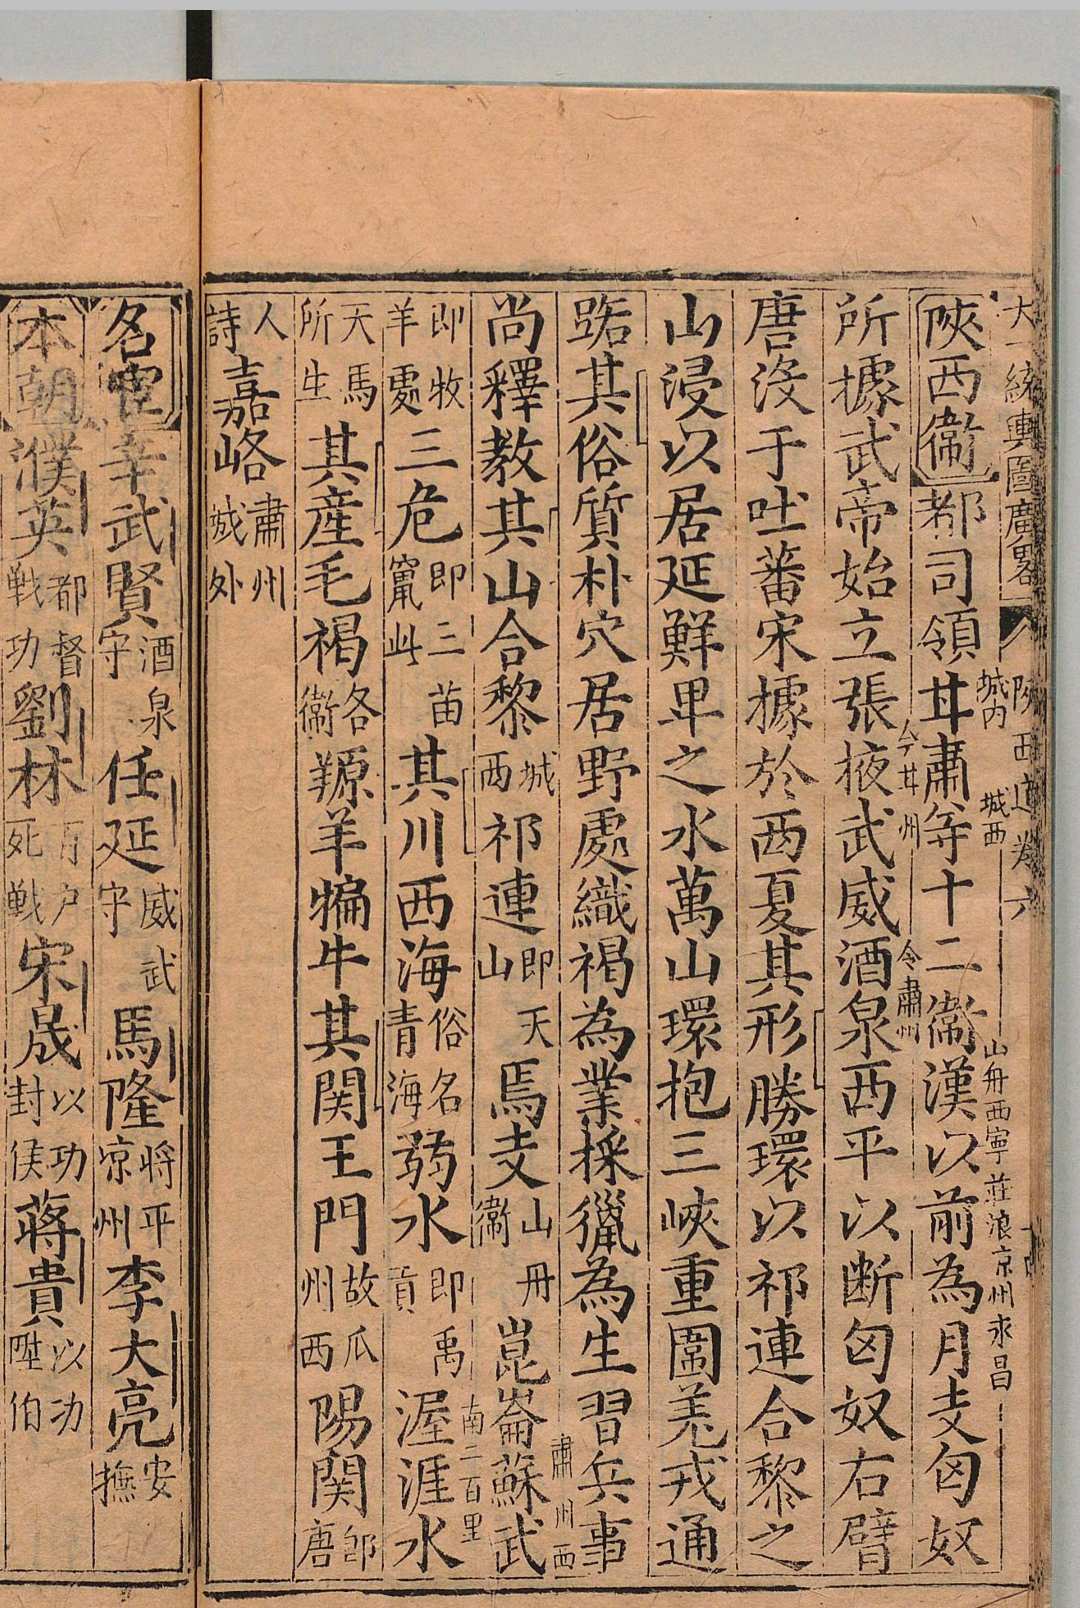 大一統輿圖廣畧 陝西道卷六
陝西衞都司領甘肅等十二衞漢以前為月支匈奴
城内 城西 山丹西寧莊浪凉州永昌
所據武帝始立張掖武威酒泉西平以断匈奴右臂
今甘州 今肅州
唐沒于吐蕃宋據於西夏其形勝環以祁連合黎之
山浸以居延鮮卑之水萬山環抱三峽重圍羗戎通
踞其俗質朴穴居野處織褐為業採獵為生習兵事
尚釋教其山合黎城西祁連即天山焉支山丹衞崑崙蘇武
肅州西南二百里
即牧羊處三危即三苗竄此其川西海俗名青海弱水即禹貢渥洼水
天馬所生其產毛褐各衞羱羊犏牛其関玉門故瓜州西陽関即唐
人詩嘉峪肅州城外
名宦辛武賢酒泉守任延武威守馬隆将平凉州李大亮安撫
本朝濮英都督戦功劉林百户戦死宋晟以功封侯蔣貴以功陞伯